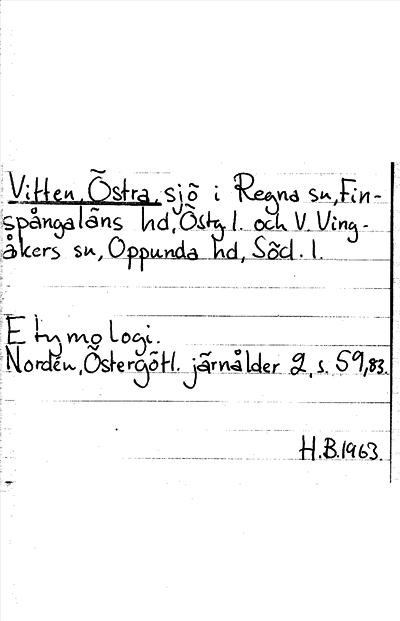 Vitten, Östra, sjö i Regna sn, Fin-
spångaläns hd, Östg l. och V. Ving-
åkers sn, Oppunda hd, Söd. l.
Etymologi.
Nordén, Östergötl. järnålder 2, s. 59, 83.
H.B. 1963.